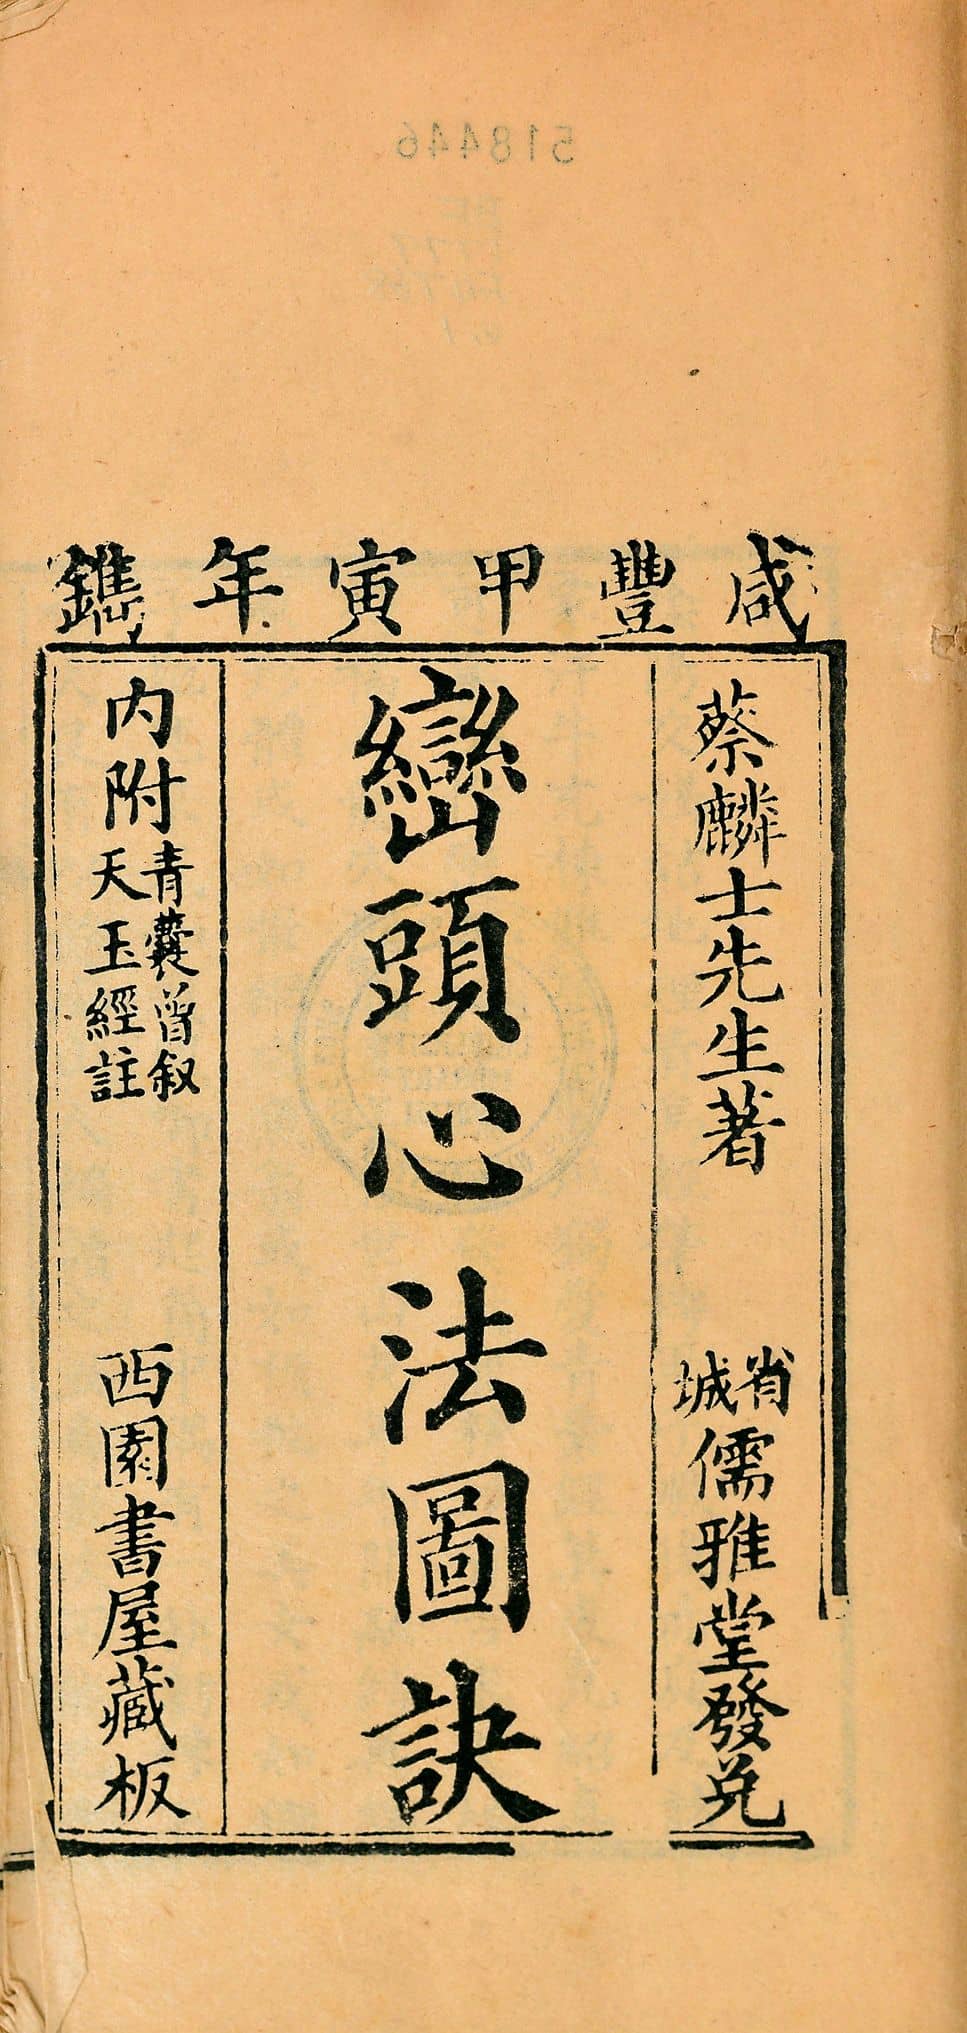 咸豐甲寅年鐫
蔡麟士先生著
省城儒雅堂發兌
巒頭心法圖訣
內附青囊曾叙
天玉經註
西園書屋藏板
518446